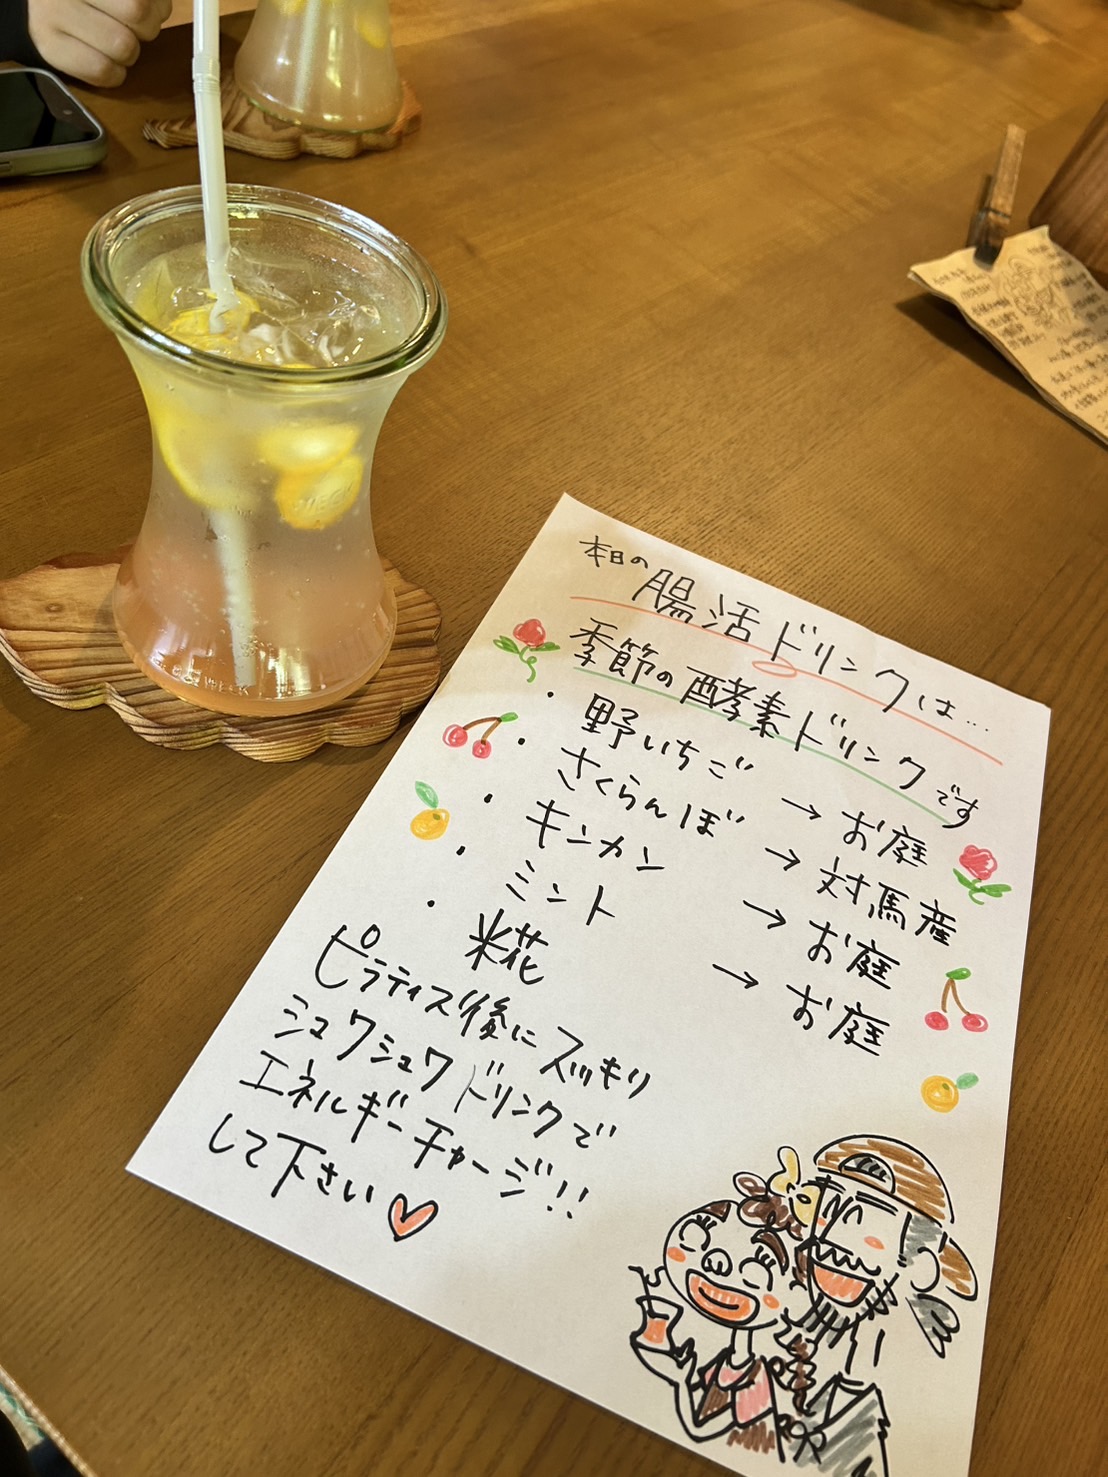 本日の腸活ドリンクは…
季節の酵素ドリンクです
・野いちご → お庭
・さくらんぼ → 対馬産
・キンカン → お庭
・ミント → お庭
・米花
ピラティス後にスッキリ
シュワシュワドリンクで
エネルギーチャージ!!
して下さい